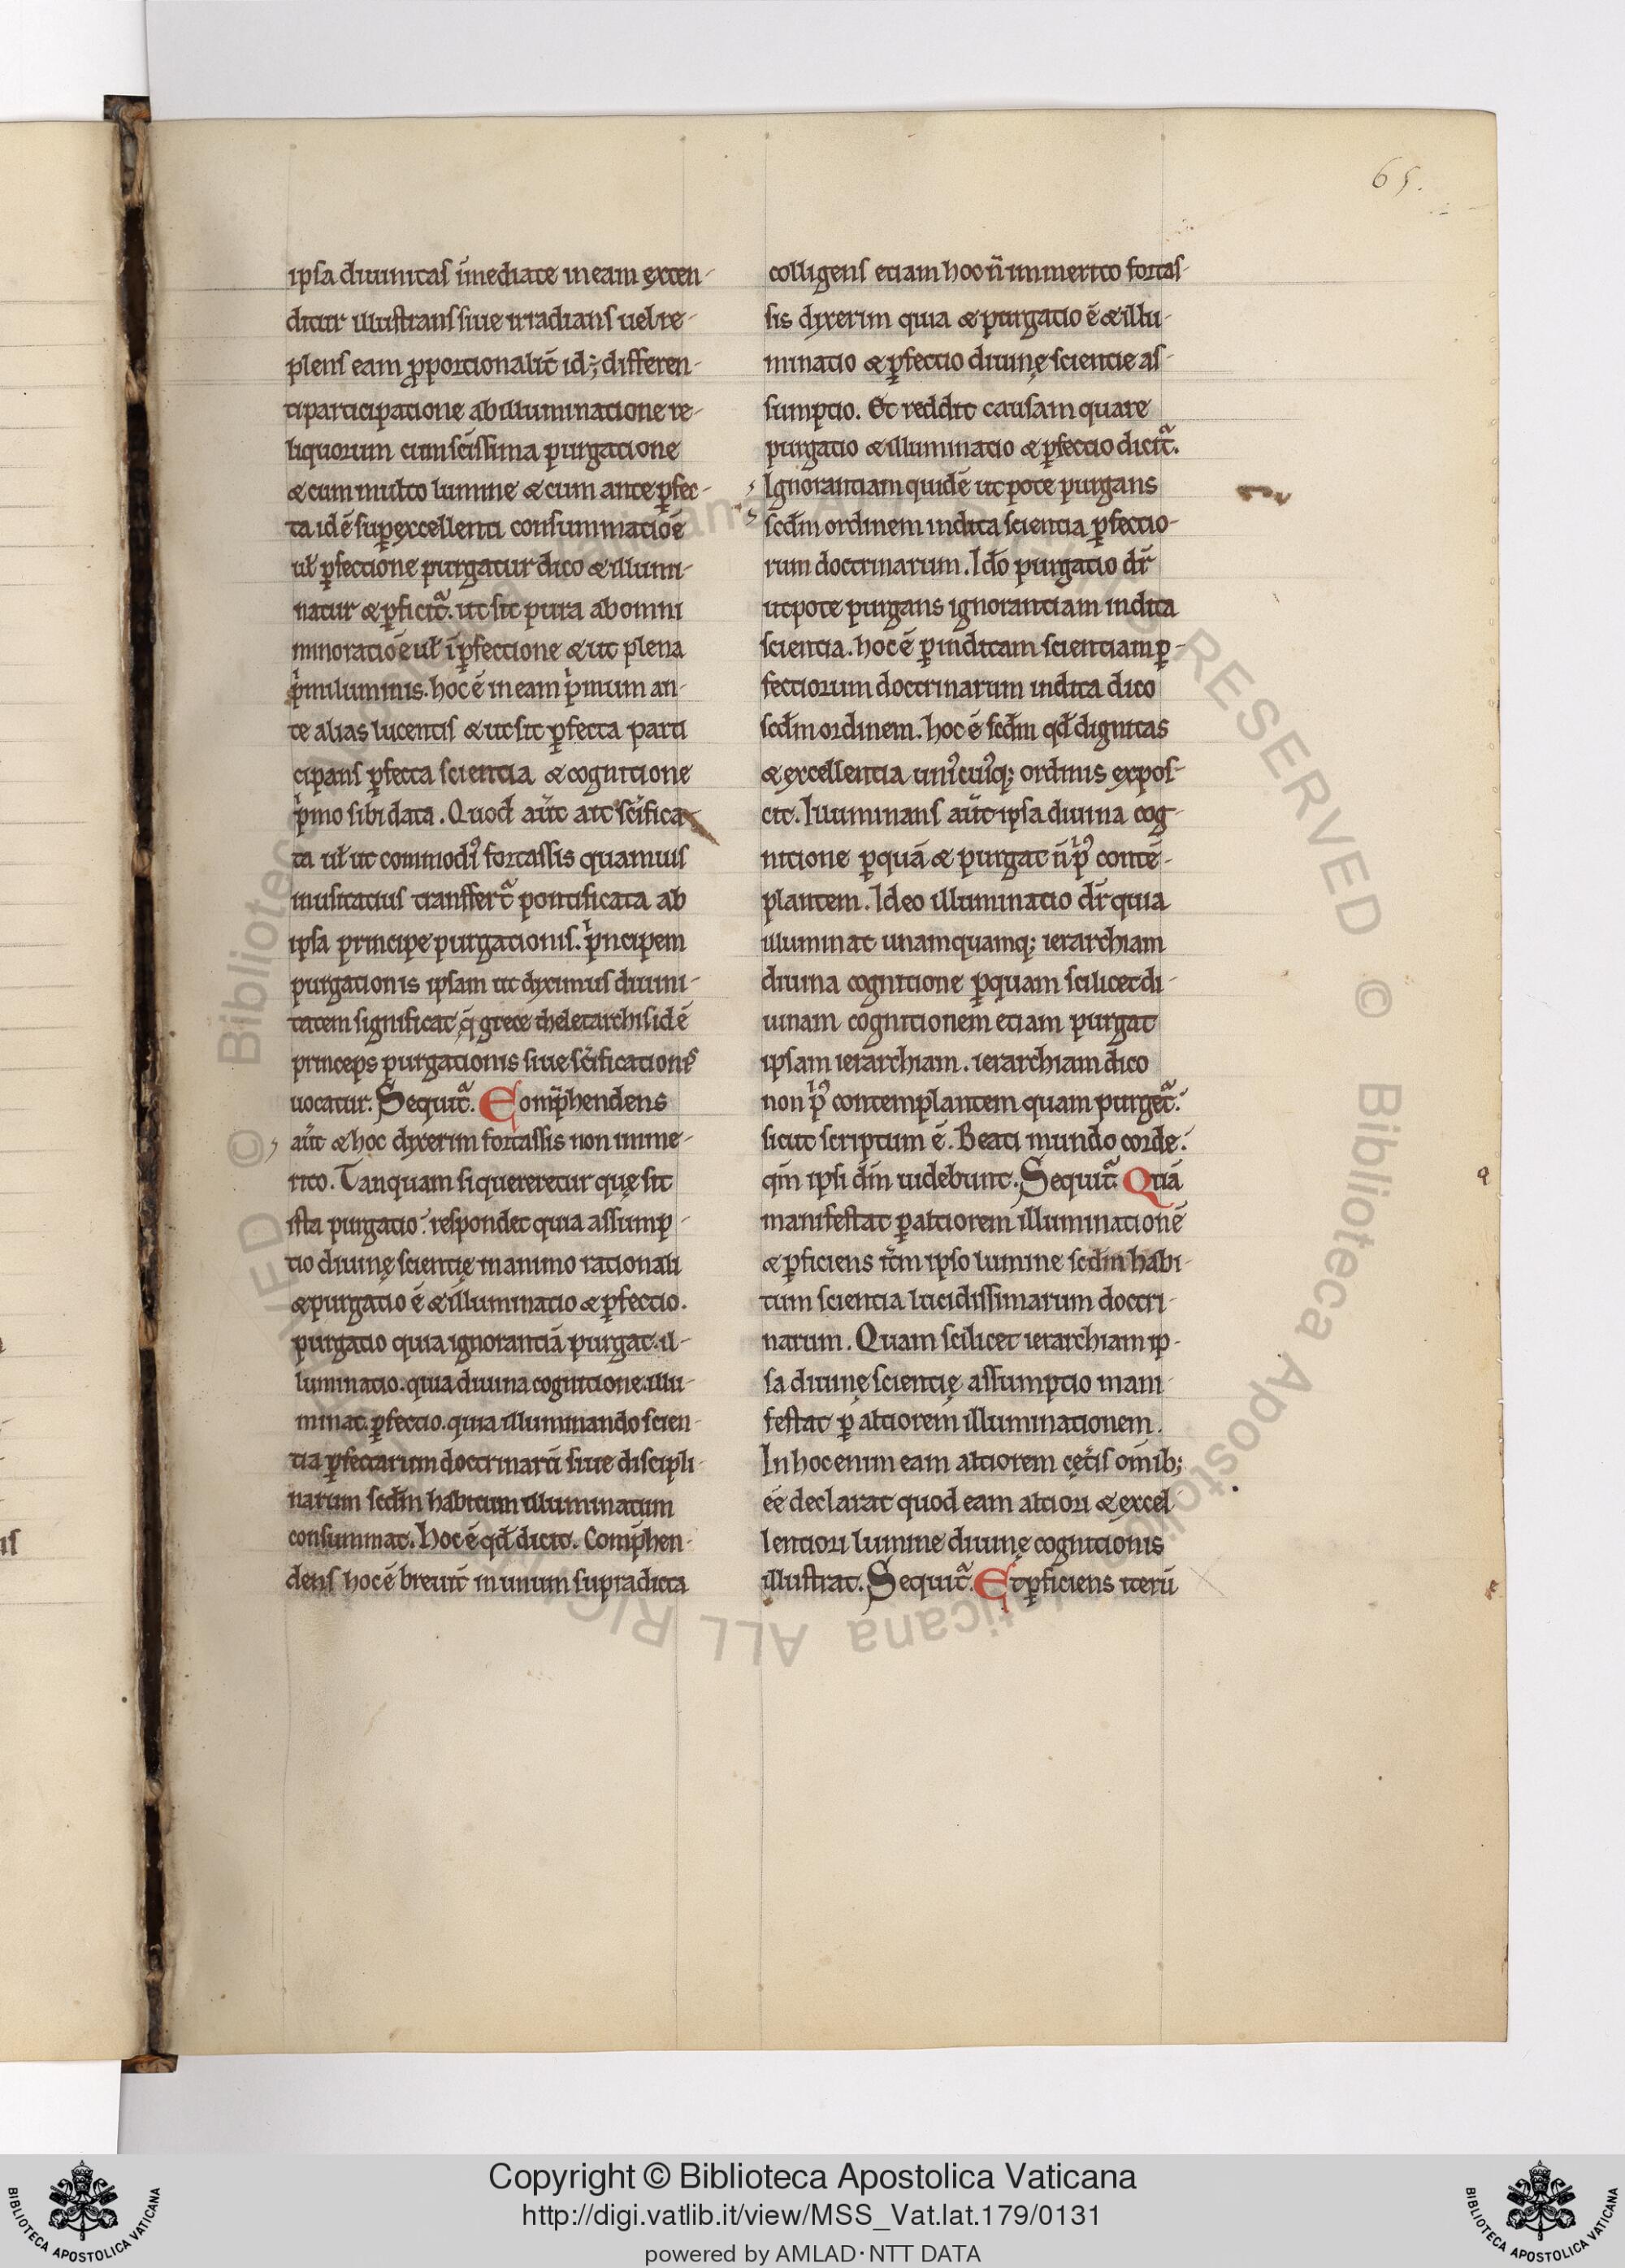 65.
ipsa diuinitas īmediate in eam exten-
ditur illustrans siue irradians uel re-
plens eam ꝓportionalit̄ id;̄ differen-
ti participatione ab illuminatione re-
liquorum cum sc̄issima purgatione
& cum multo lumine & cum ante ꝑfec-
ta id ē suꝑexcellenti consummatiōe
ul̄ ꝑfectione purgatur dico & illumi-
natur & ꝑficit᷑. ut sit pura ab omni
minoratiōe ul̄ īꝑfectione & ut plena
pͥmi luminis. hoc ē in eam pͥmum an-
te alias lucentis & ut sit ꝑfecta parti
cipans ꝑfecta scientia & cognitione
pͥmo sibi data. Quod aūt ait sc̄ifica
ta ul̄ ut commodi᷒ fortassis quamuis
inusitatius transfert᷑ pontificata ab
ipsa principe purgationis. pͥncipem
purgationis ipsam ut dyximus diuini-
tatem significat q̄ grece theletarchis id ē
princeps purgationis siue sc̄ificationis
uocatur. Sequit᷑. Comp̄hendens
aūt & hoc dyxerim fortassis non imme-
rito. Tanquam si quereretur quę sit
ista purgatio? respondet quia assump-
tio diuinę scientię in animo rationali
& purgatio ē & illuminatio & ꝑfectio.
purgatio quia ignorantiā purgat. il-
luminatio. quia diuina cognitione illu-
minat. ꝑfectio. quia illuminando scien-
tia ꝑfectarum doctrinarū siue discipli-
narum scd̄m habitum illuminatum
consummat. Hoc ē qd̄ dicit. Comp̄hen-
dens hoc ē breuit̄ in unum supradicta
colligens etiam hoc n̄ immerito fortas-
sis dyxerim quia & purgatio ē & illu-
minatio & ꝑfectio diuinę scientie as-
sumptio. Et reddit causam quare
purgatio & illuminatio & ꝑfectio dicit᷑.
Ignorantiam quidē ut pote purgans
scd̄m ordinem indita scientia ꝑfectio-
rum doctrinarum. Ido purgatio dr̄
utpote purgans ignorantiam indita
scientia. hoc ē ꝑ inditam scientiam ꝑ-
fectiorum doctrinarum indita dico
scd̄m ordinem. hoc ē scd̄m qd̄ dignitas
& excellentia uni᷒cui᷒q; ordinis expos-
cit. Illuminans aūt ipsa diuina cog-
nitione ꝑ quā & purgat n̄ pͥ᷒ contē-
plantem. Ideo illuminatio dr̄ quia
illuminat unamquamq; ierarchiam
diuina cognitione ꝑ quam scilicet di-
uinam cognitionem etiam purgat
ipsam ierarchiam. ierarchiam dico
non pͥ᷒ contemplantem quam purget᷑.
sicut scriptum ē. Beati mundo corde.
qm̄ ipsi dm̄ uidebunt. Sequit᷑. Quā
manifestat ꝑ altiorem illuminationē
& ꝑficiens it̄m ipso lumine scd̄m habi-
tum scientia lucidissimarum doctri-
narum. Quam scilicet ierarchiam ip-
sa diuinę scientię assumptio mani-
festat ꝑ altiorem illuminationem.
In hoc enim eam altiorem cęt̄is om̄ib;
eē declarat quod eam altiori & excel
lentiori lumine diuinę cognitionis
illustrat. Sequit᷑. Et ꝑficiens iterū
Copyright © Biblioteca Apostolica Vaticana
http://digi.vatlib.it/view/MSS_Vat.lat.179/0131
powered by AMLAD·NTT DATA